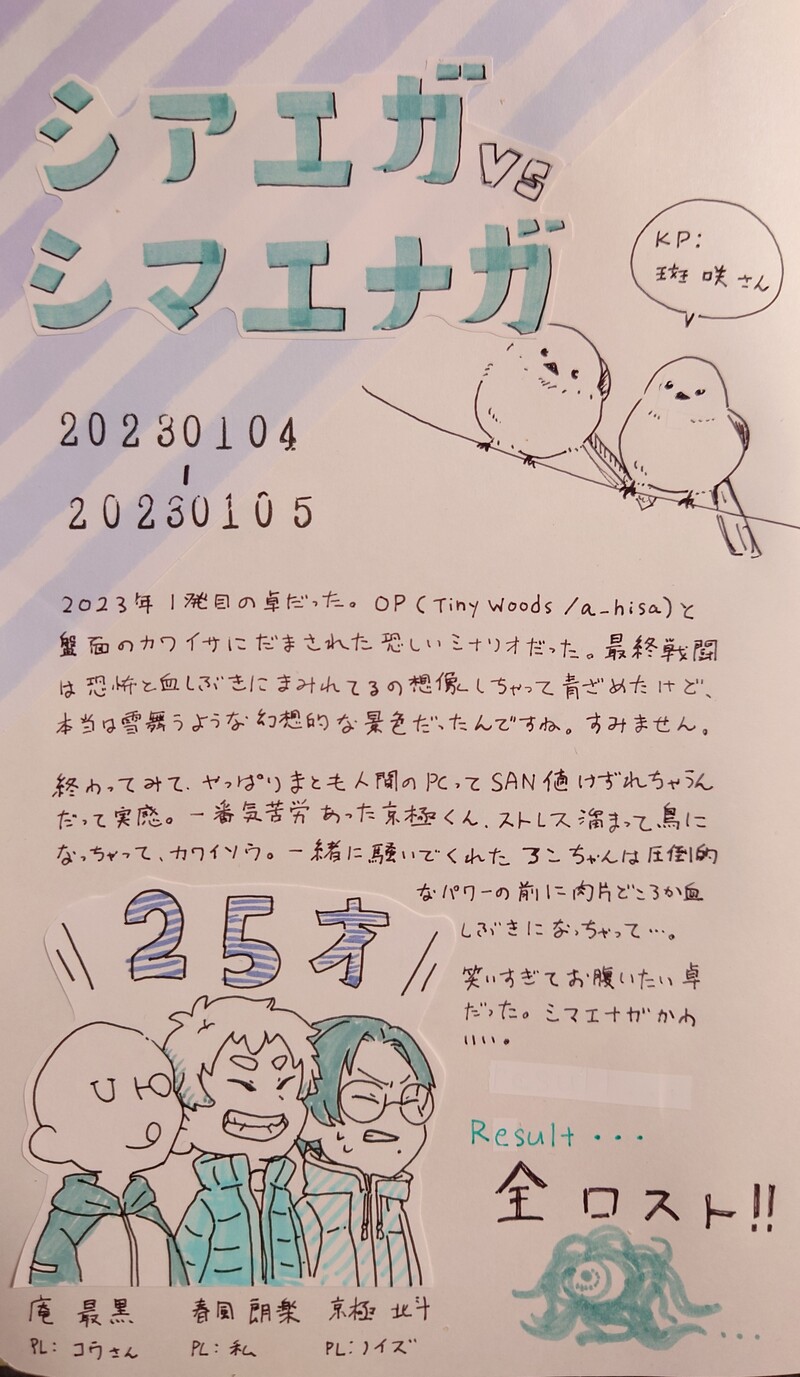 シアエガ vs
シマエナガ
KP:
斑 咲 さん
20230104
-
20230105
2023年1発目の卓だった。OP(Tiny Woods/a_hisa)と
盤面のカワイサにだまされた恐しいシナリオだった。最終戦闘
は恐怖と血しぶきにまみれてるの想像しちゃって青ざめたけど、
本当は雪舞うような幻想的な景色だったんですね。すみません。
終わってみて、やっぱりまとも人間のPCってSAN値けずれちゃうん
だって実感。一番気苦労あった京極くん、ストレス溜まって、鳥に
なっちゃって、カワイソウ。一緒に騒いでくれたアンちゃんは圧倒的
なパワーの前に肉片どころか血
しぶきになっちゃって…。
笑いすぎてお腹いたい卓
だった。シマエナガかわ
いい。
25才
Result・・・
全ロスト!!
・・・
庵 最黒
PL: コウさん
春風 朗楽
PL: 私
京極 北斗
PL: ノイズ